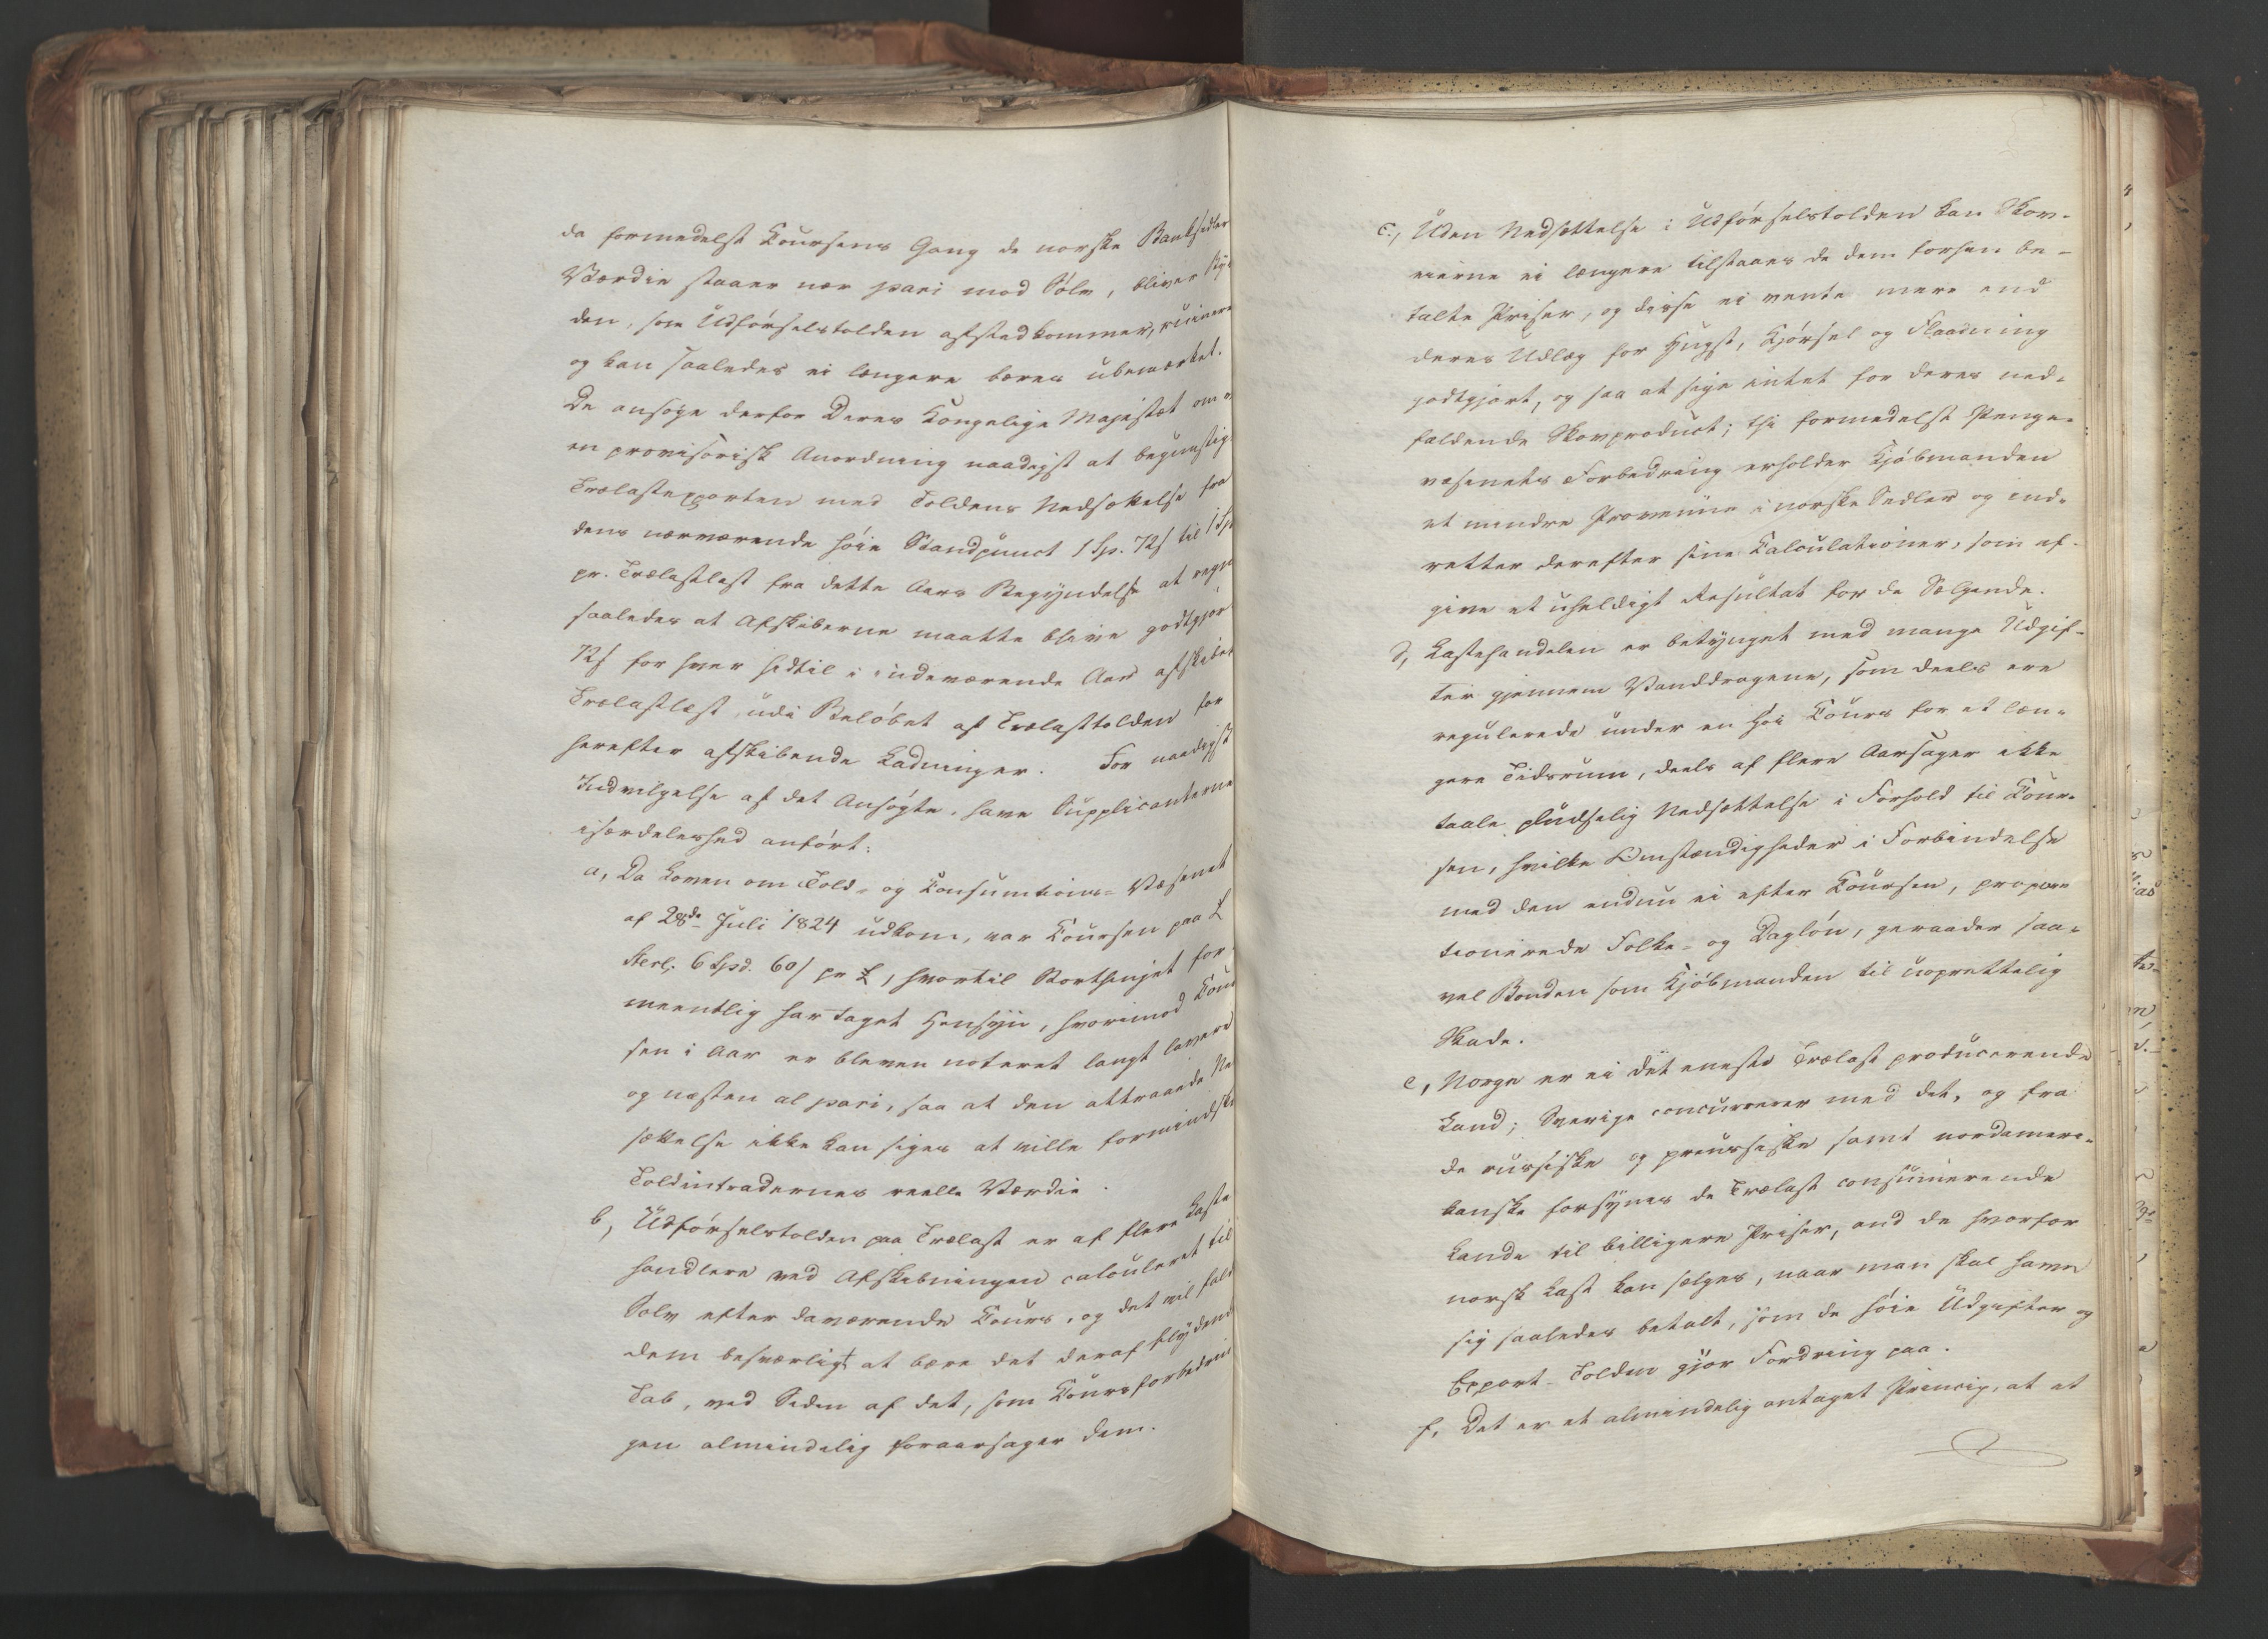 da formedelst Coursens Gang de norske Banksedler
Værdie staaer nær pari mod Sølv, bliver
den, som Udførselstolden afstedkommer, ruinere
og kan saaledes ei længere bæres ubemærket.
De ansøge derfor Deres Kongelige Majestæt om
en provisorisk Anordning naadigst at begunstige
Trælastexporten med Toldens Nedsættelse fra
dens nærværende høie Standpunct 1 Sp. 72 ß til 1 Sp
pr. Trælastlæst fra dette Aars Begyndelse at regne
saaledes at Afskiberne maatte blive godtgjor
72 ß for hver hidtil i indeværende Aar afskibet
Trælastlæst, udi Beløbet af Trælasttolden for
herefter afskibende Ladninger. For naadigst
Indvilgelse af det Ansøgte, have Supplicanterne
isærdeleshed anført:
a, Da Loven om Told- og Consumtions-Væsenet
af 28de Juli 1824 udkom, var Coursen paa £
Sterl. 6 Spd. 60 ß pr £, hvortil Storthinget for
meentlig har taget Hensyn, hvorimod Cour
sen i Aar er bleven noteret langt lavere
og næsten al pari, saa at den attraaede Ned
sættelse ikke kan siges at ville formindske
Toldintradernes reelle Værdie.
b, Udførselstolden paa Trælast er af flere Laste
handlere ved Afskibningen calculeret til
Sølv efter daværende Cours, og det vil fald
dem besværligt at bære det deraf flydende
Tab, ved Siden af det, som Coursforbedrin
gen almindelig foraarsager dem.
c., Uden Nedsættelse i Udførselstolden kan Skov-
eierne ei længere tilstaaes de dem forhen be-
talte Priser, og disse ei vente mere end
deres Udlæg for Hugst, Kjørsel og Flaadning
godtgjort, og saa at sige intet for deres ned-
faldende Skovproduct; thi formedelst Penge-
væsenets Forbedring erholder Kjøbmanden
et mindre Provenue i norske Sedler og ind-
retter derefter sine Calculationer, som af-
give et uheldigt Resultat for de Sælgende.
d, Lastehandelen er betynget med mange Udgif-
ter gjennem Vanddragene, som deels ere
regulerede under en høi Cours for et læn-
gere Tidsrum, deels af flere Aarsager ikke
taale pludselig Nedsættelse i Forhold til Cour-
sen, hvilke Omstændigheder i Forbindelse
med den endnu ei efter Coursen, propor
tionerede Folke- og Dagløn, geraader saa-
vel Bonden som Kjøbmanden til uoprettelig
Skade.
e, Norge er ei det eneste Trælast producerende
Land; Sverige concurrerer med det, og fra
de russiske og preussiske samt nordameri-
kanske forsynes de Trælast consumerende
Lande til billigere Priser, end de hvorfor
norsk Last kan sælges, naar man skal have
sig saaledes betalt, som de høie Udgifter og
Export-Tolden gjør Fordring paa.
f, Det er et almindelig antaget Princip, at et